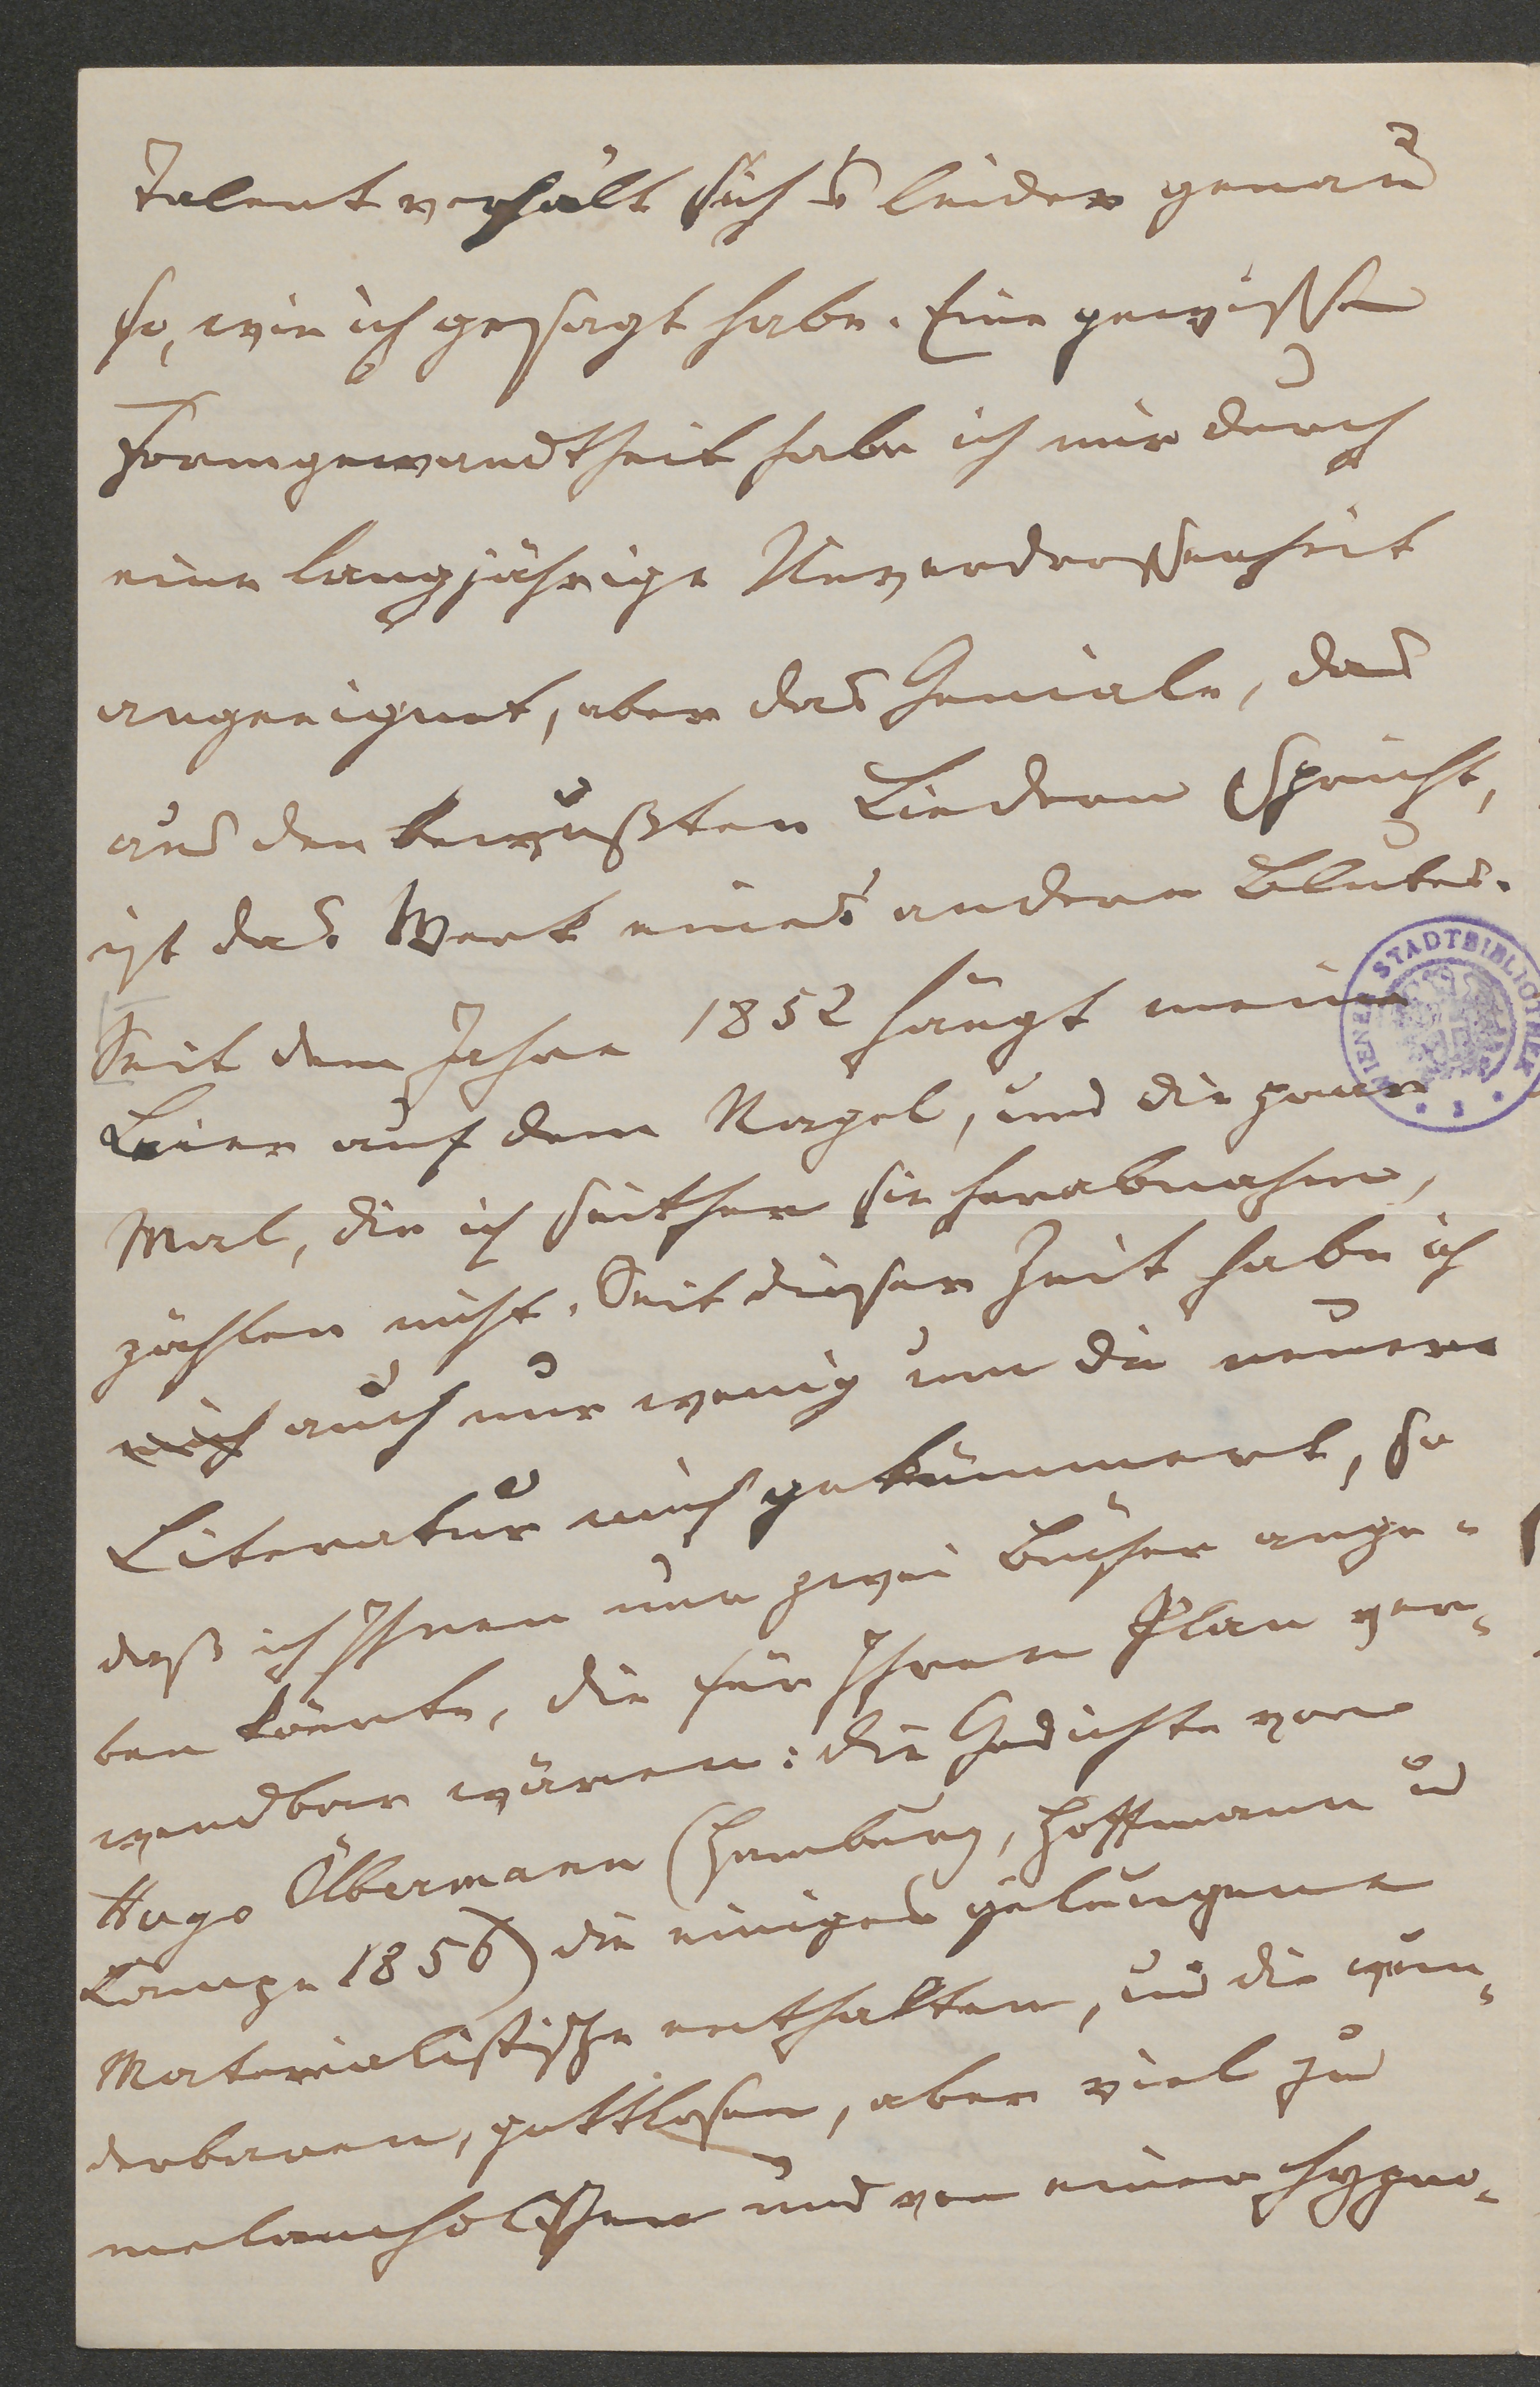 Talent verhält sich's leider genau
so, wie ich gesagt habe. Eine gewisse
Formgewandtheit habe ich mir durch
eine langjährige Unverdrossenheit
angeeignet, aber das Geniale, das
aus den bewußten Liedern spricht,
ist das Werk eines andern Blutes.
Seit dem Jahre 1852 hängt meine
Leier auf dem Nagel, und die paar
Mal, die ich seither sie herabnahm,
zählen nicht. Seit dieser Zeit habe ich
mich auch nur wenig um die neuere
Literatur mich gekümmert, so
daß ich Ihnen nur zwei Bücher ange-
ben könnte, die für Ihren Plan ver-
wendbar wären: die Gedichte von
Hugo Ölbermann (Hamburg, Hoffmann u
Campe 1856) die einiges gelungene
Materialistische enthalten, und die wun-
derbaren, gottlosen, aber viel zu
melancholischen und von einer Hypno-
WIENER STADTBIBLIOTHEK